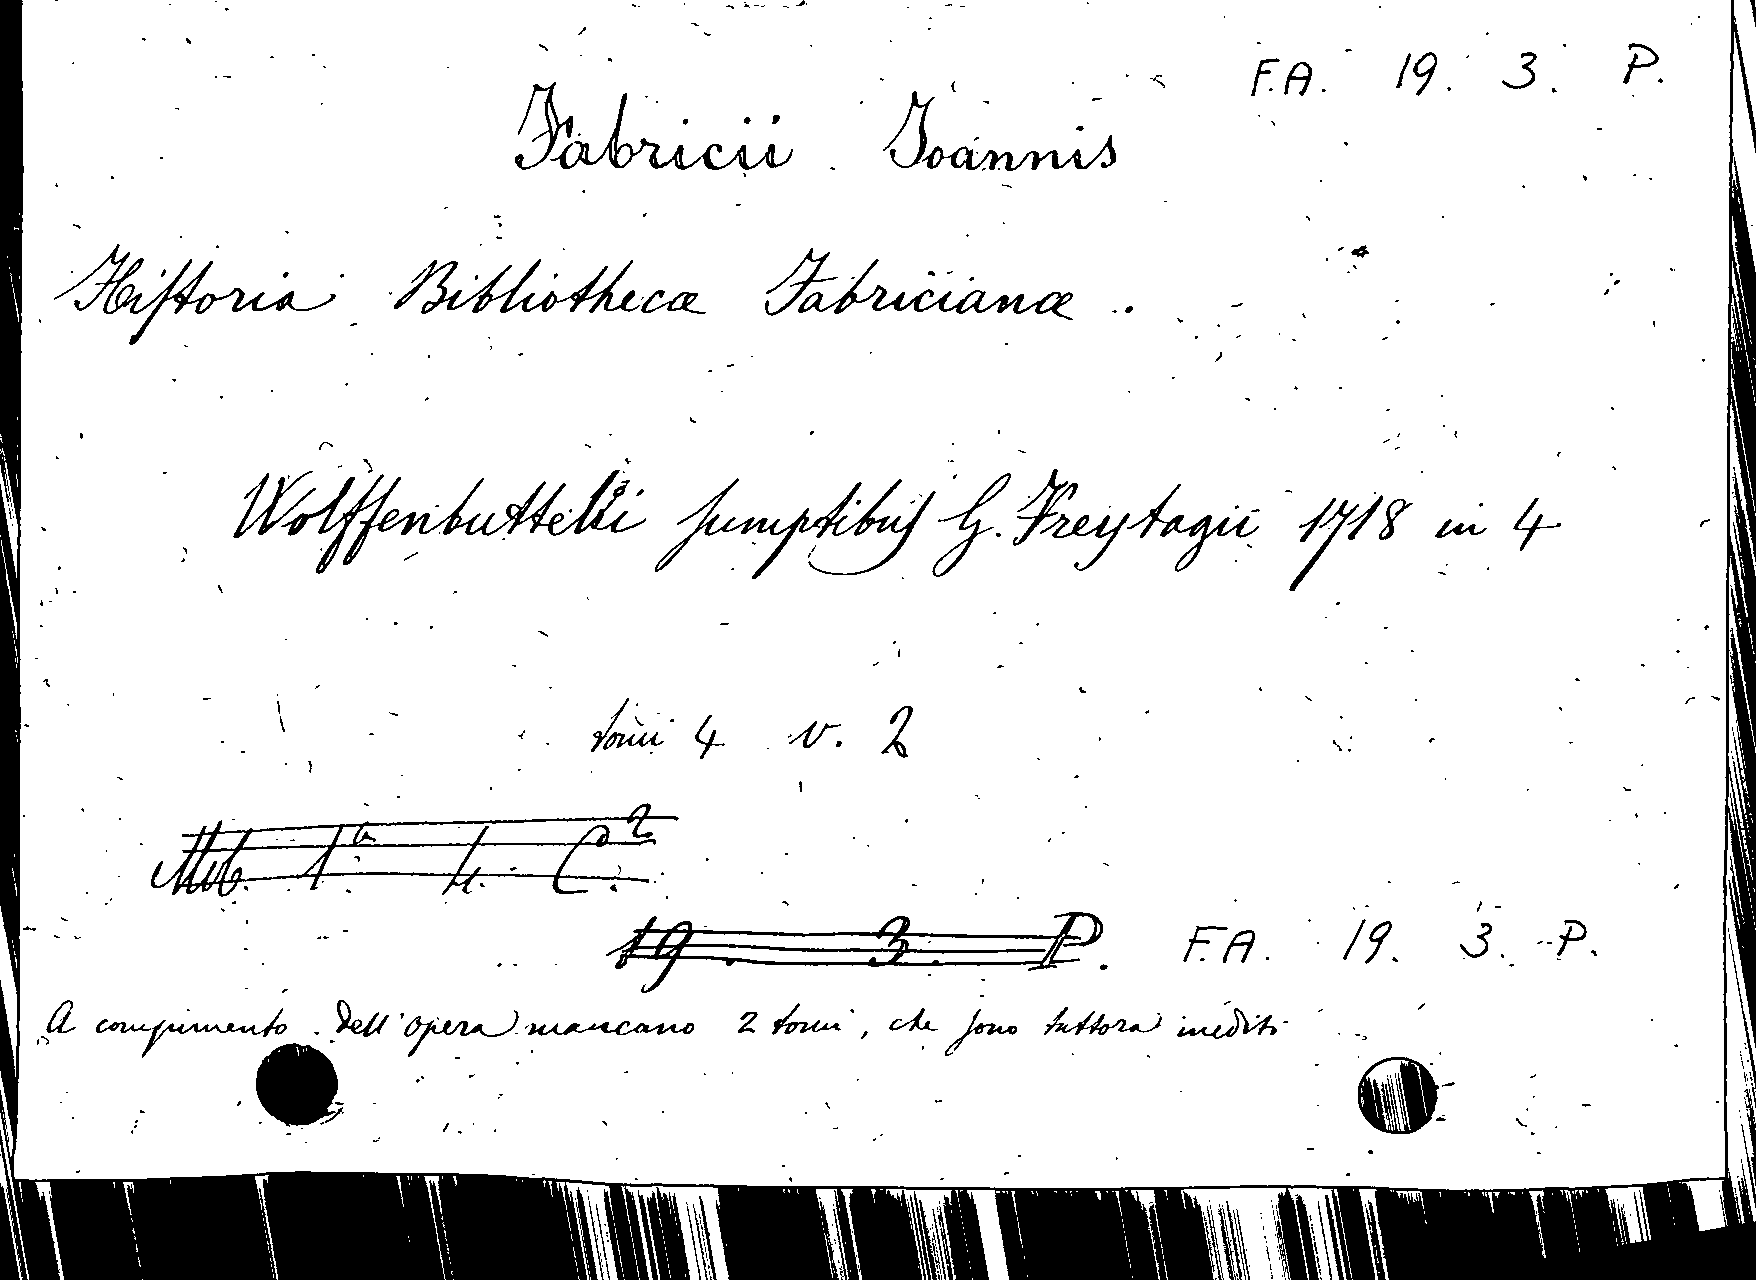 F.A. 19. 3. P.
Fabricii Joannis
Hiſtoria Bibliothecæ Fabricianæ.
Wolffenbuttelii ſumptibuſ G. Freytagii 1718 in 4
tomi 4 v. 2
1ª 4. C.2
19. 3. P. F.A. 19. 3. P.
A compimento dell'opera mancano 2 tomi, che ſono tuttora inediti